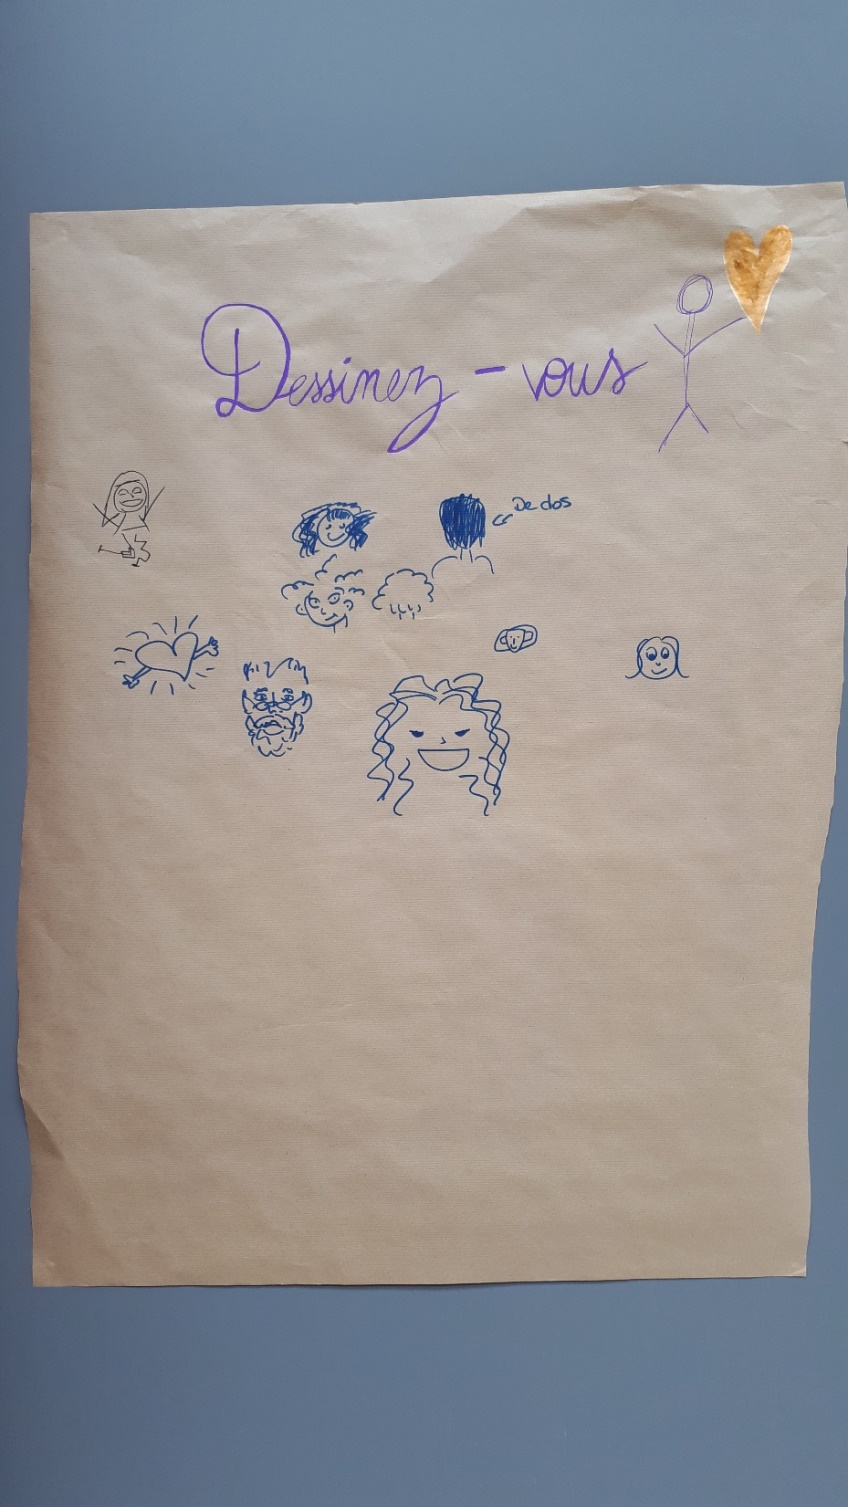 Dessinez-vous
De dos